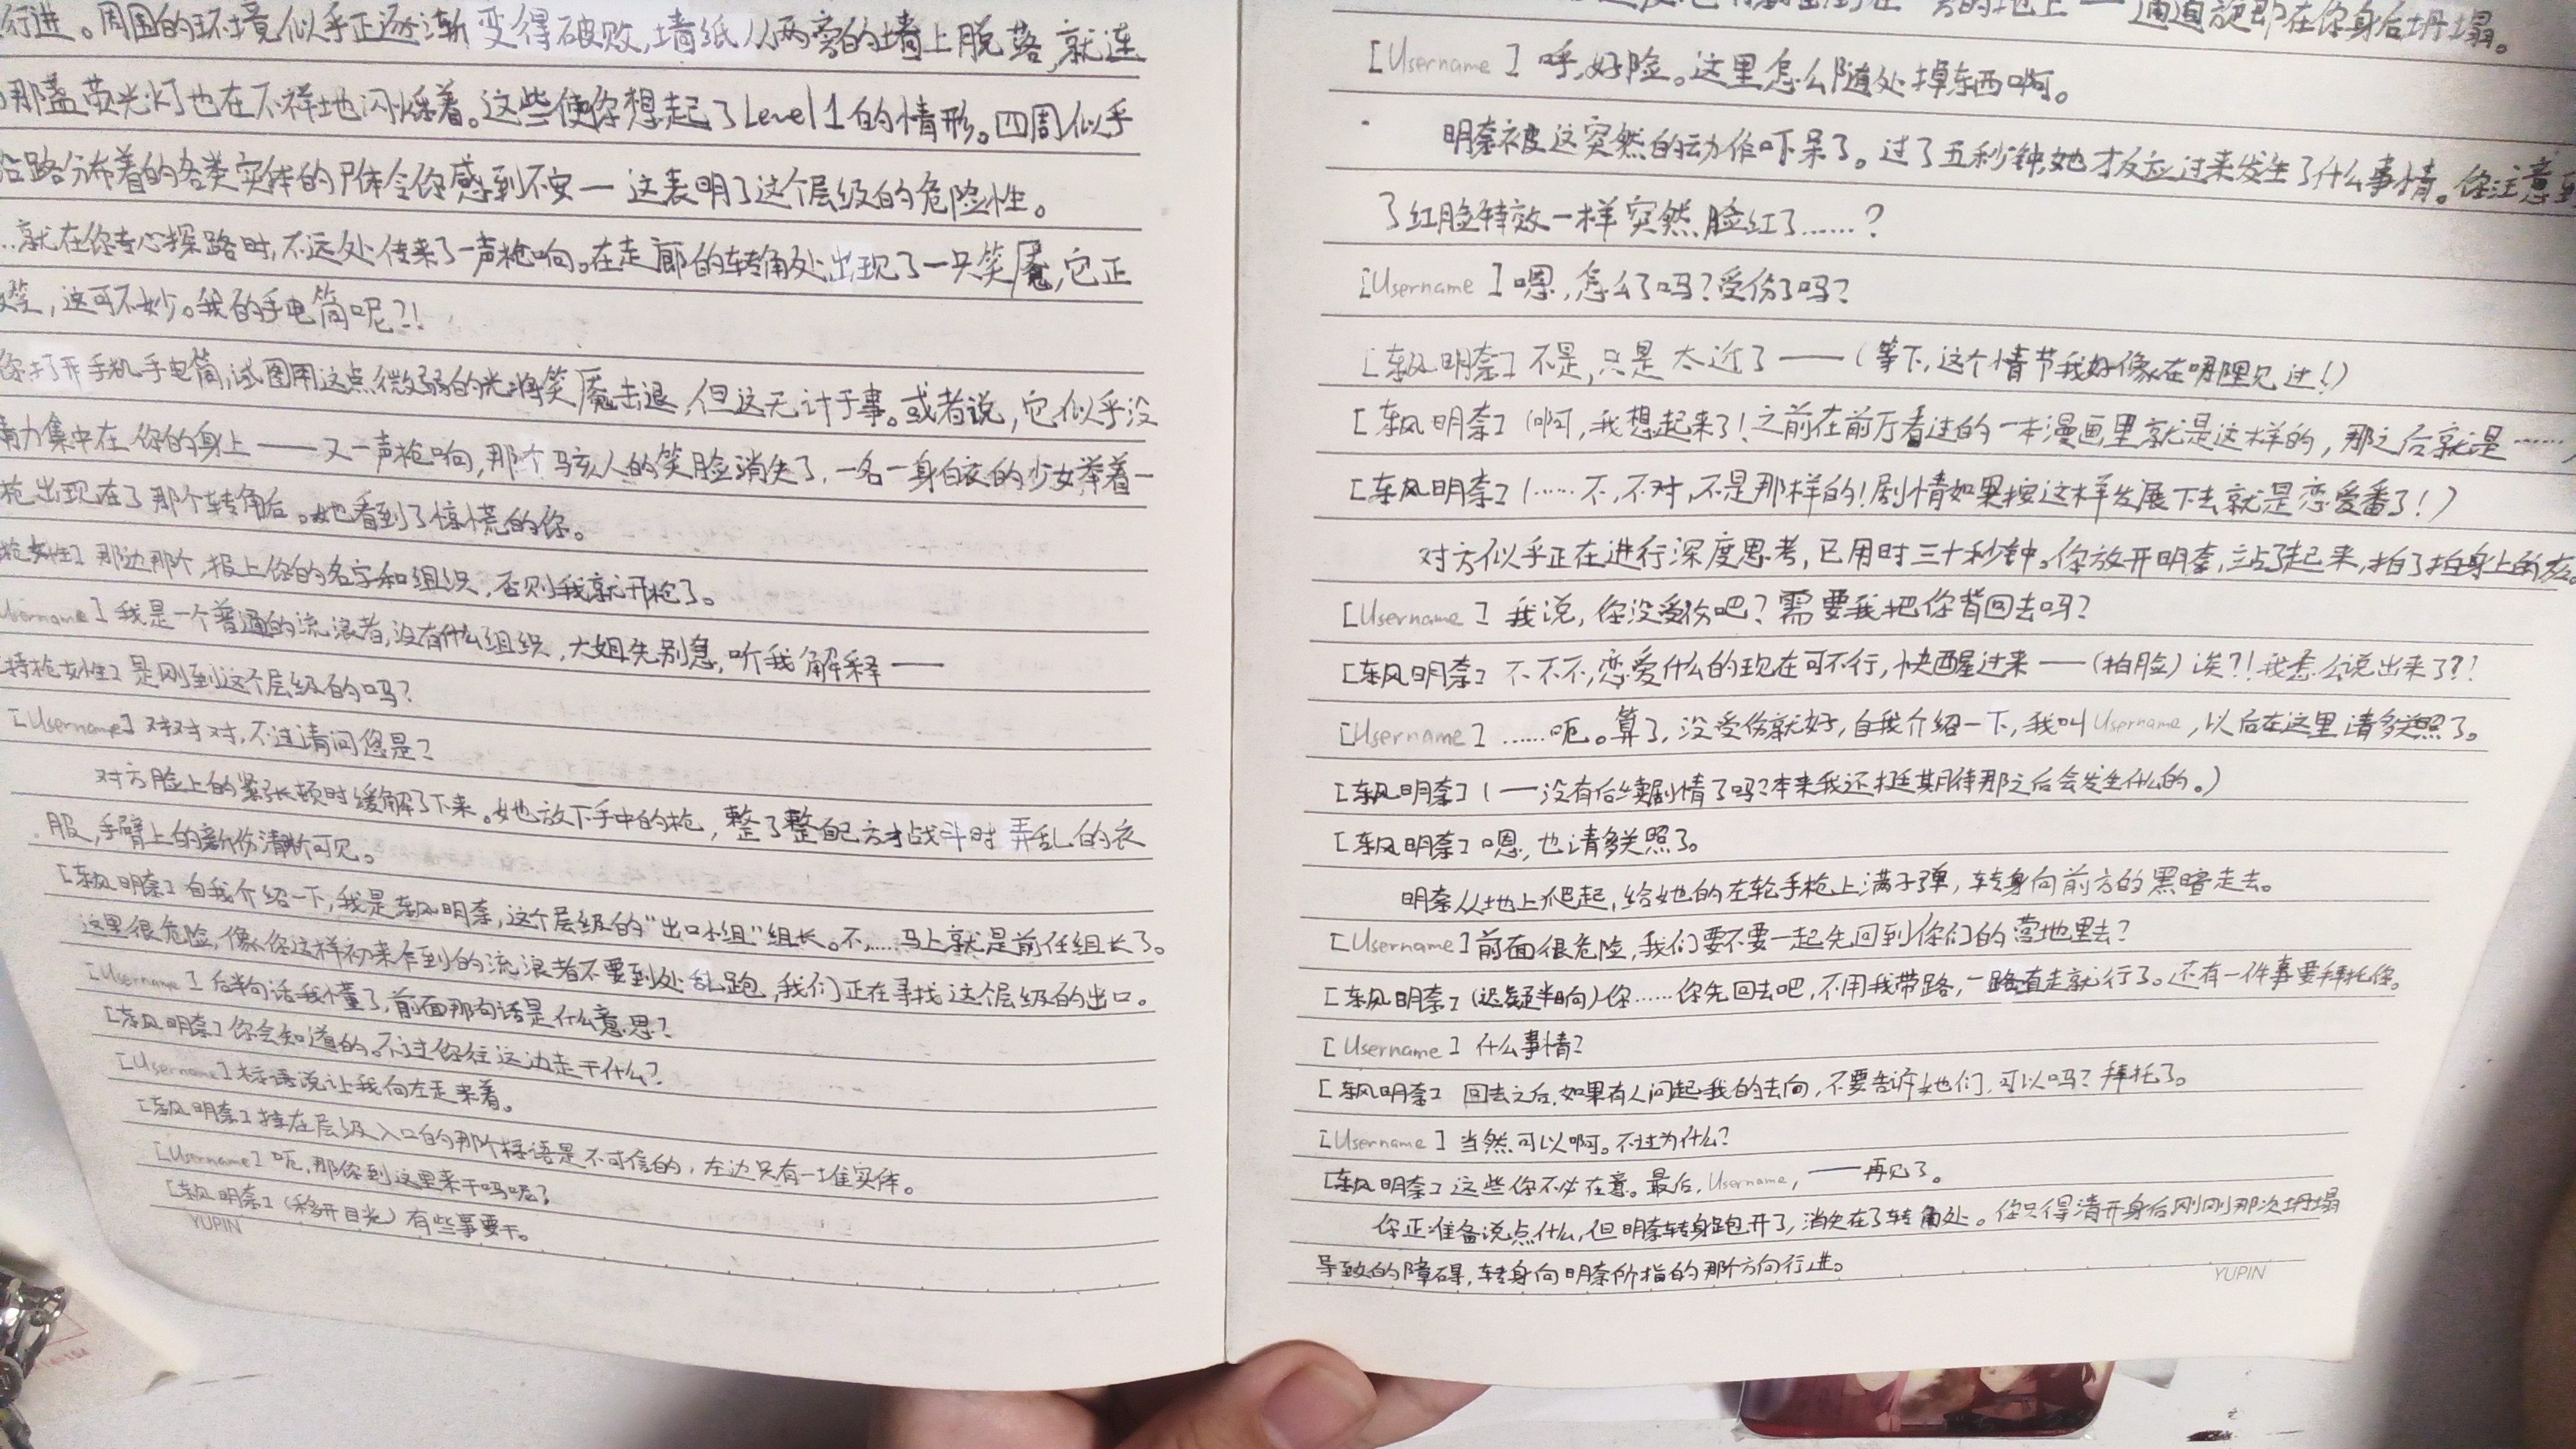 行进。周围的环境似乎正逐渐变得破败,墙纸从两旁的墙上脱落,就连
那盏荧光灯也在不祥地闪烁着。这些使你想起了Level 1的情形。四周似乎
沿路分布着的各类实体的尸体令你感到不安—这表明了这个层级的危险性。
…就在你专心探路时,不远处传来了一声枪响。在走廊的转角处出现了一只笑魇,它正
,这可不妙。我的手电筒呢?!
你打开手机手电筒,试图用这点微弱的光将笑魇击退,但这无计于事。或者说,它似乎没
力集中在你的身上——又一声枪响,那个骇人的笑脸消失了,一名一身白衣的少女举着一
枪出现在了那个转角后。她看到了惊慌的你。
枪女性】那边那个,报上你的名字和组织,否则我就开枪了。
Username】我是一个普通的流浪者,没有什么组织,大姐先别急,听我解释——
持枪女性】是刚到这个层级的吗?
【Username】对对对,不过请问您是?
对方脸上的紧张顿时缓解了下来。她放下手中的枪,整了整自己方才战斗时弄乱的衣
服,手臂上的新伤清晰可见。
【东风明奈】自我介绍一下,我是东风明奈,这个层级的“出口小组”组长。不,……马上就是前任组长了。
这里很危险,像你这样初来乍到的流浪者不要到处乱跑,我们正在寻找这个层级的出口。
【Username】后半句话我懂了,前面那句话是什么意思?
【东风明奈】你会知道的。不过你往这边走干什么?
【Username】标语说让我向左走来着。
【东风明奈】挂在层级入口的那个标语是不可信的,左边只有一堆实体。
【Username】呃,那你到这里来干吗呢?
【东风明奈】(移开目光)有些事要干。
YUPIN
的地上——通道旋即在你身后坍塌。
【Username】呼,好险。这里怎么随处掉东西啊。
明奈被这突然的动作吓呆了。过了五秒钟,她才反应过来发生了什么事情。你注意到
了红脸特效一样突然脸红了……?
【Username】嗯,怎么了吗?受伤了吗?
【东风明奈】不是,只是太近了——(等下,这个情节我好像在哪里见过!)
【东风明奈】(啊,我想起来了!之前在前厅看过的一本漫画里就是这样的,那之后就是……)
【东风明奈】(……不,不对,不是那样的!剧情如果按这样发展下去就是恋爱番了!)
对方似乎正在进行深度思考,已用时三十秒钟。你放开明奈,站了起来,拍了拍身上的灰。
【Username】我说,你没受伤吧?需要我把你背回去吗?
【东风明奈】不不不,恋爱什么的现在可不行,快醒过来——(拍脸)诶?!我怎么说出来了?!
【Username】……呃。算了,没受伤就好,自我介绍一下,我叫Username,以后在这里请多关照了。
【东风明奈】(——没有后续剧情了吗?本来我还挺期待那之后会发生什么的。)
【东风明奈】嗯,也请多关照了。
明奈从地上爬起,给她的左轮手枪上满子弹,转身向前方的黑暗走去。
【Username】前面很危险,我们要不要一起先回到你们的营地里去?
【东风明奈】(迟疑半晌)你……你先回去吧,不用我带路,一路直走就行了。还有一件事要拜托你。
【Username】什么事情?
【东风明奈】回去之后,如果有人问起我的去向,不要告诉她们,可以吗?拜托了。
【Username】当然可以啊。不过为什么?
【东风明奈】这些你不必在意。最后,Username,——再见了。
你正准备说点什么,但明奈转身跑开了,消失在了转角处。你只得清开身后刚刚那次坍塌
导致的障碍,转身向明奈所指的那个方向行进。
YUPIN